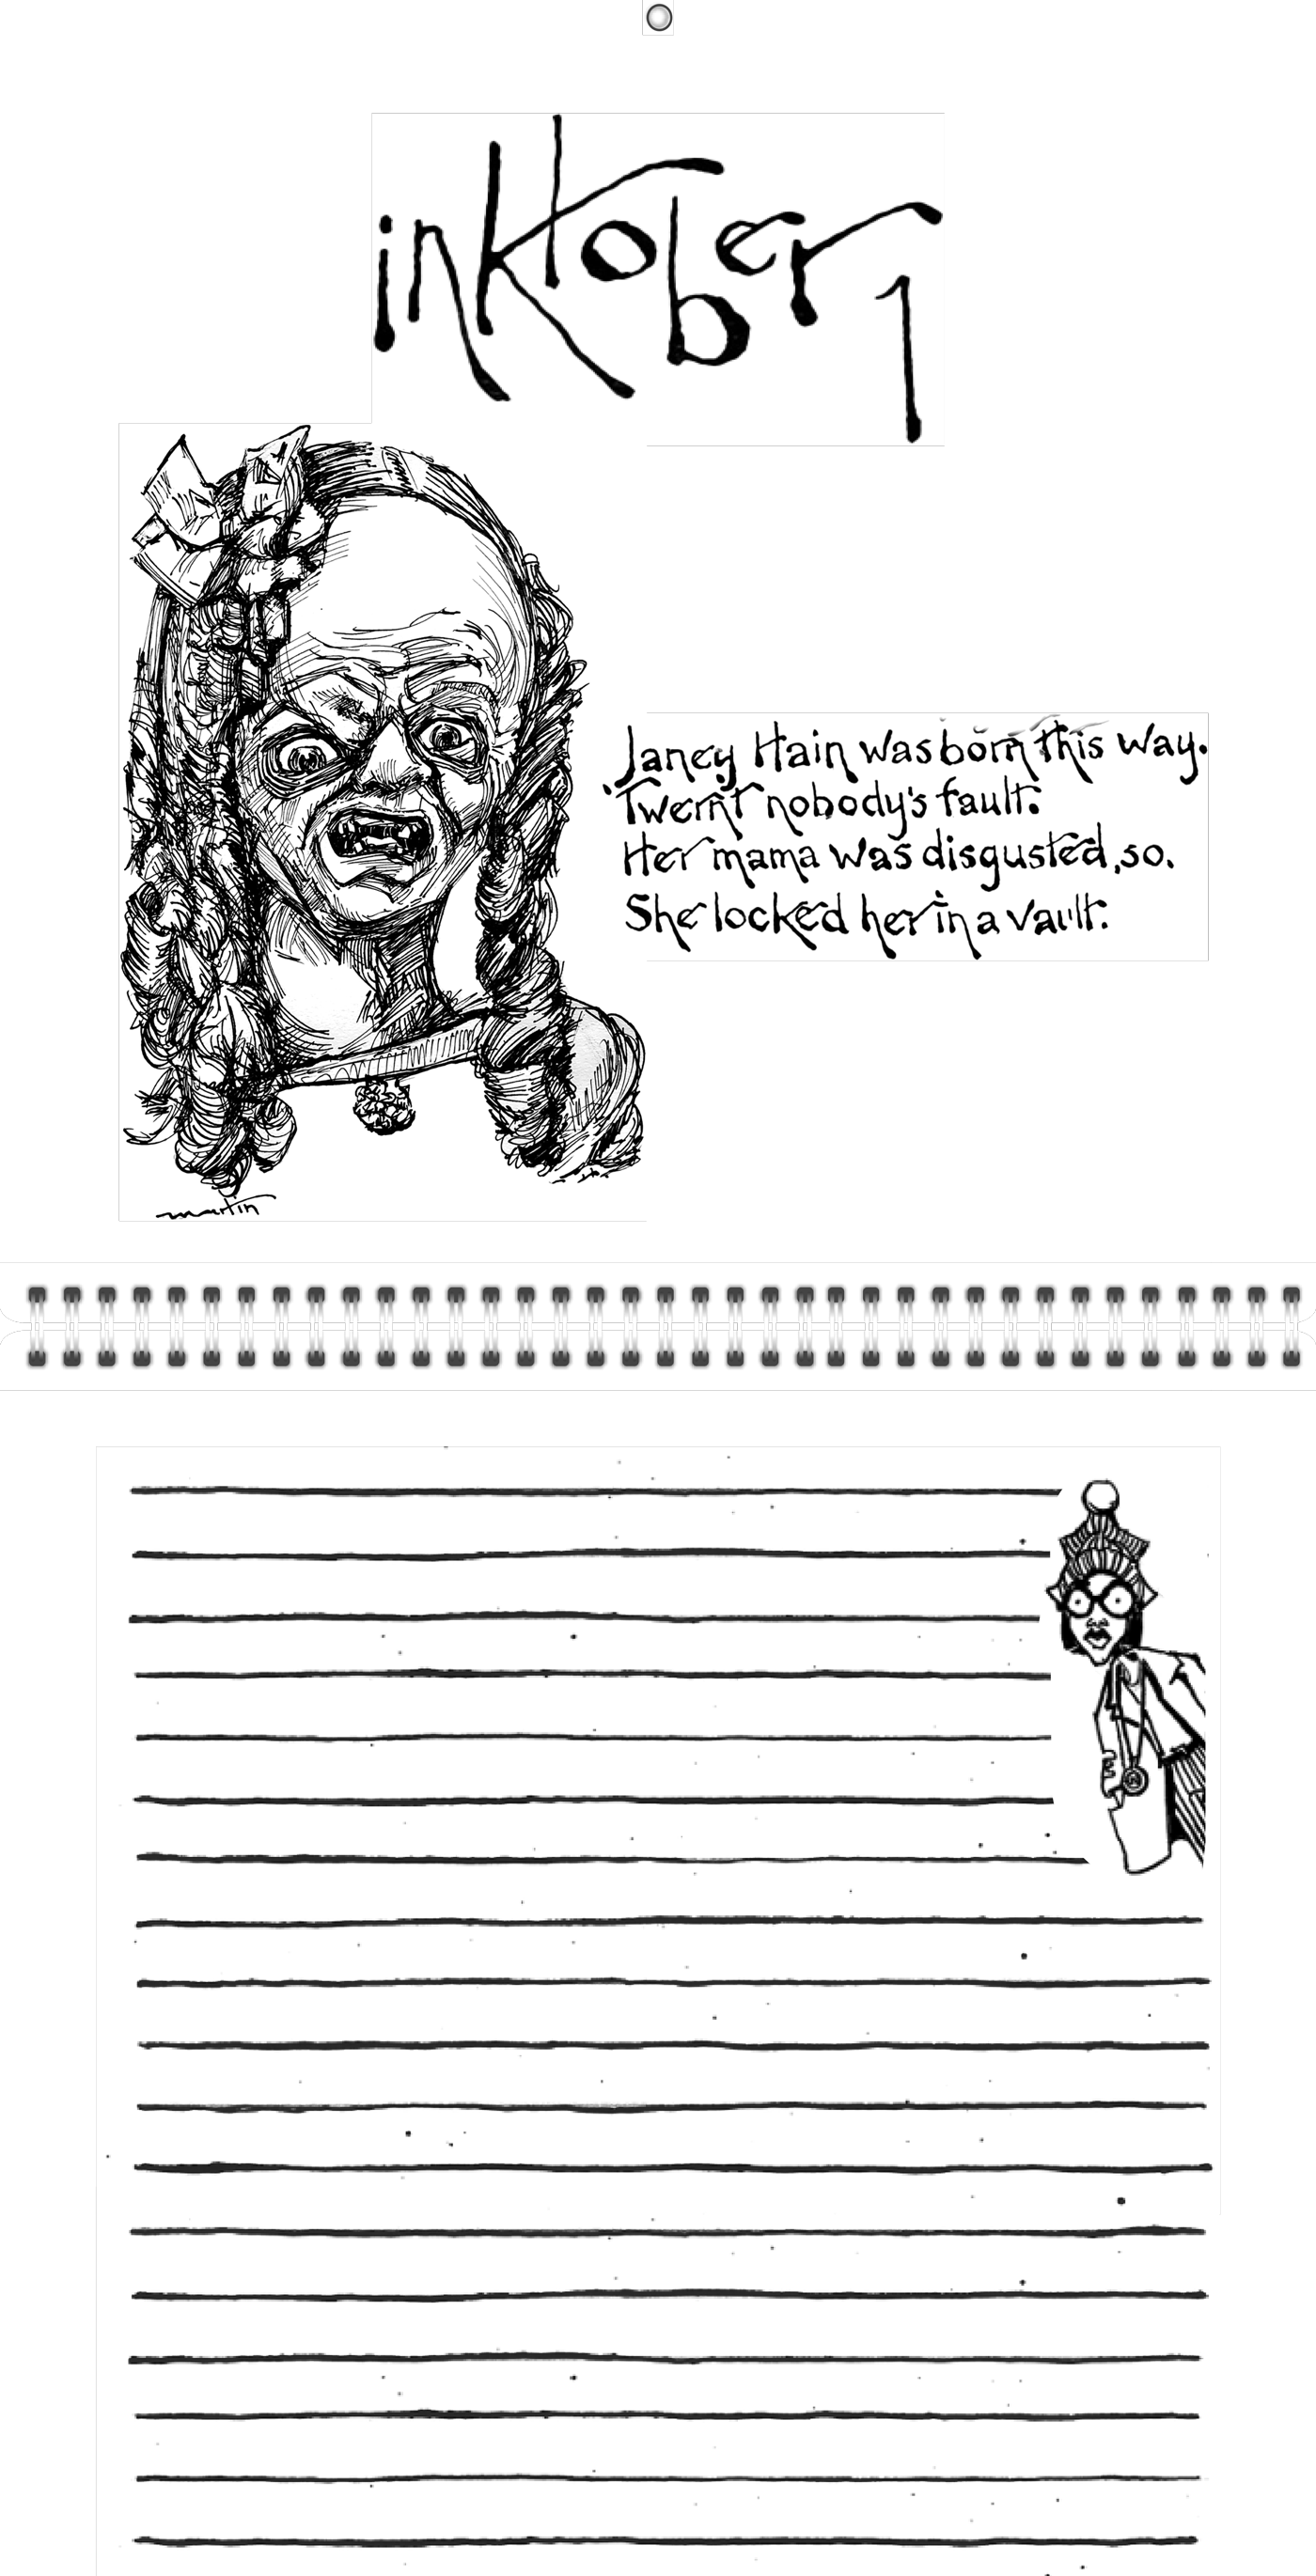 inktober 1
Janey Hain was born this way.
'Twern't nobody's fault.
Her mama was disgusted, so.
She locked her in a vault.
martin